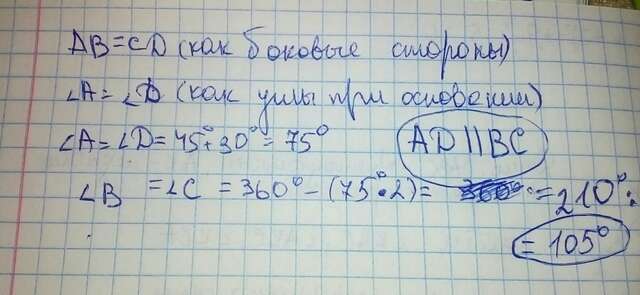 AB=CD (как боковые стороны)
∠A=∠D (как углы при основении)
∠A=∠D=45°+30°=75°
AD||BC
∠B =∠C =360°-(75°·2)= =210°:
=105°